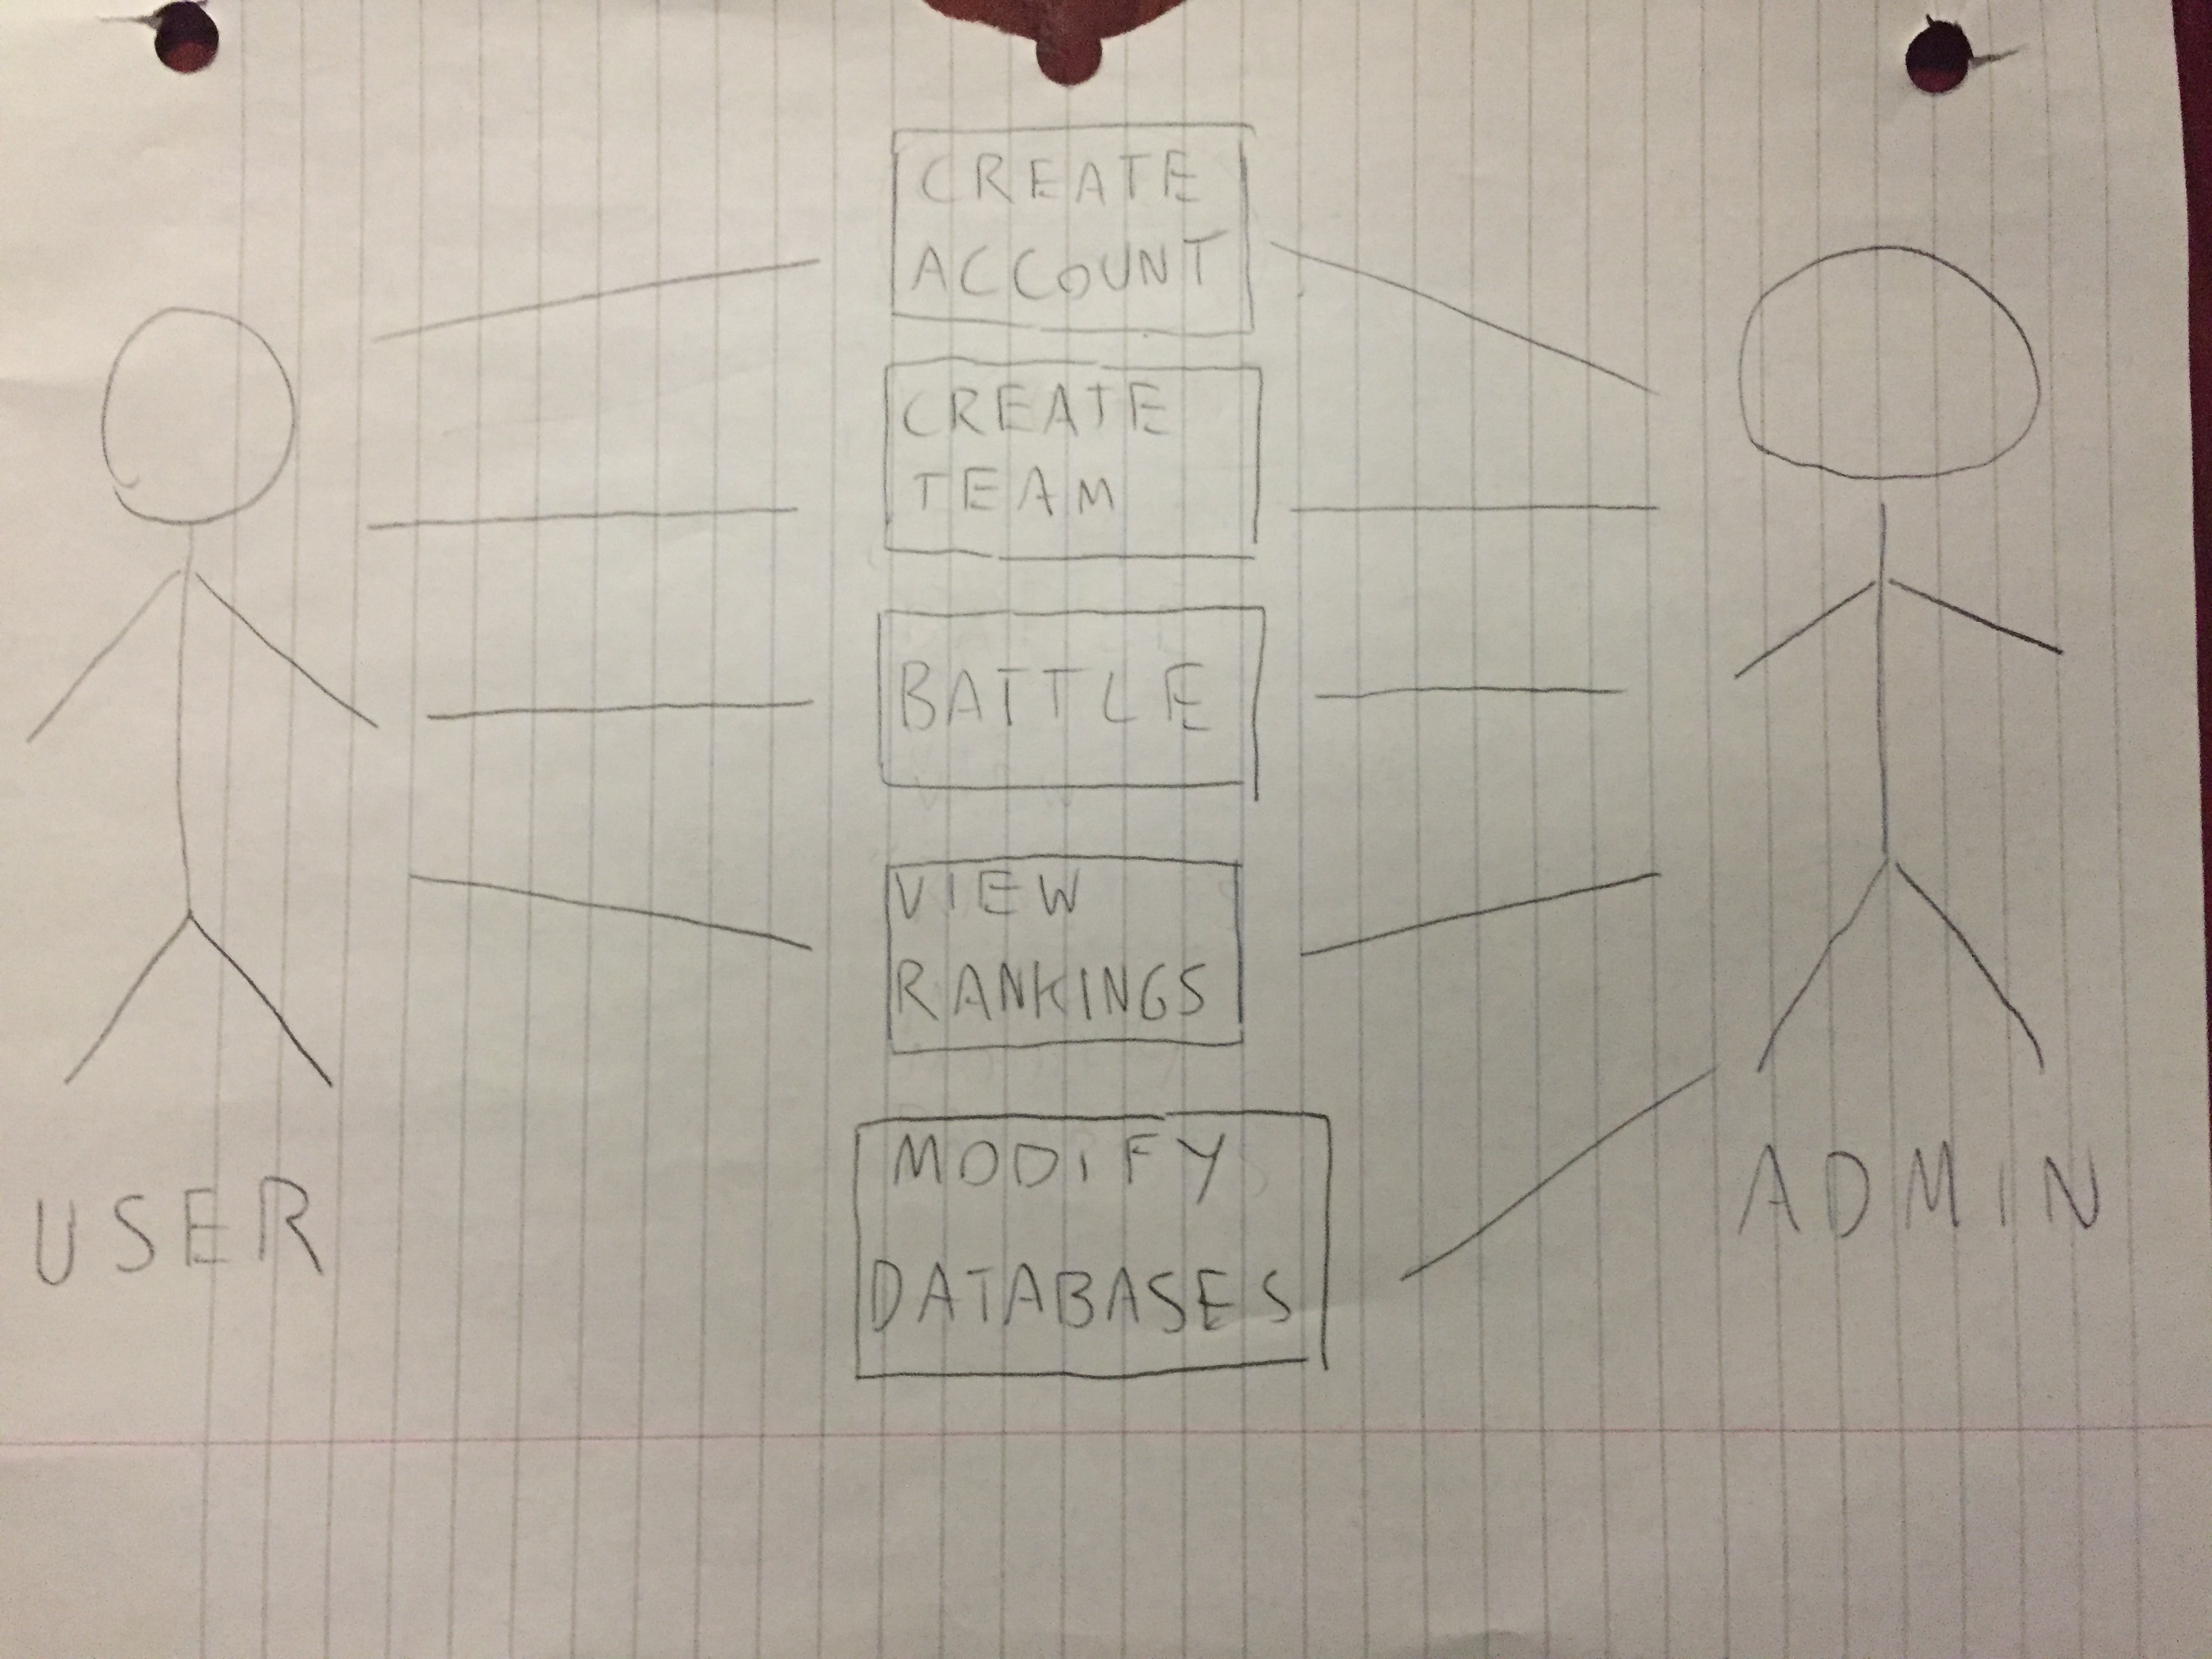 CREATE
ACCOUNT
CREATE
TEAM
BATTLE
VIEW
RANKINGS
MODIFY
DATABASES
USER
ADMIN